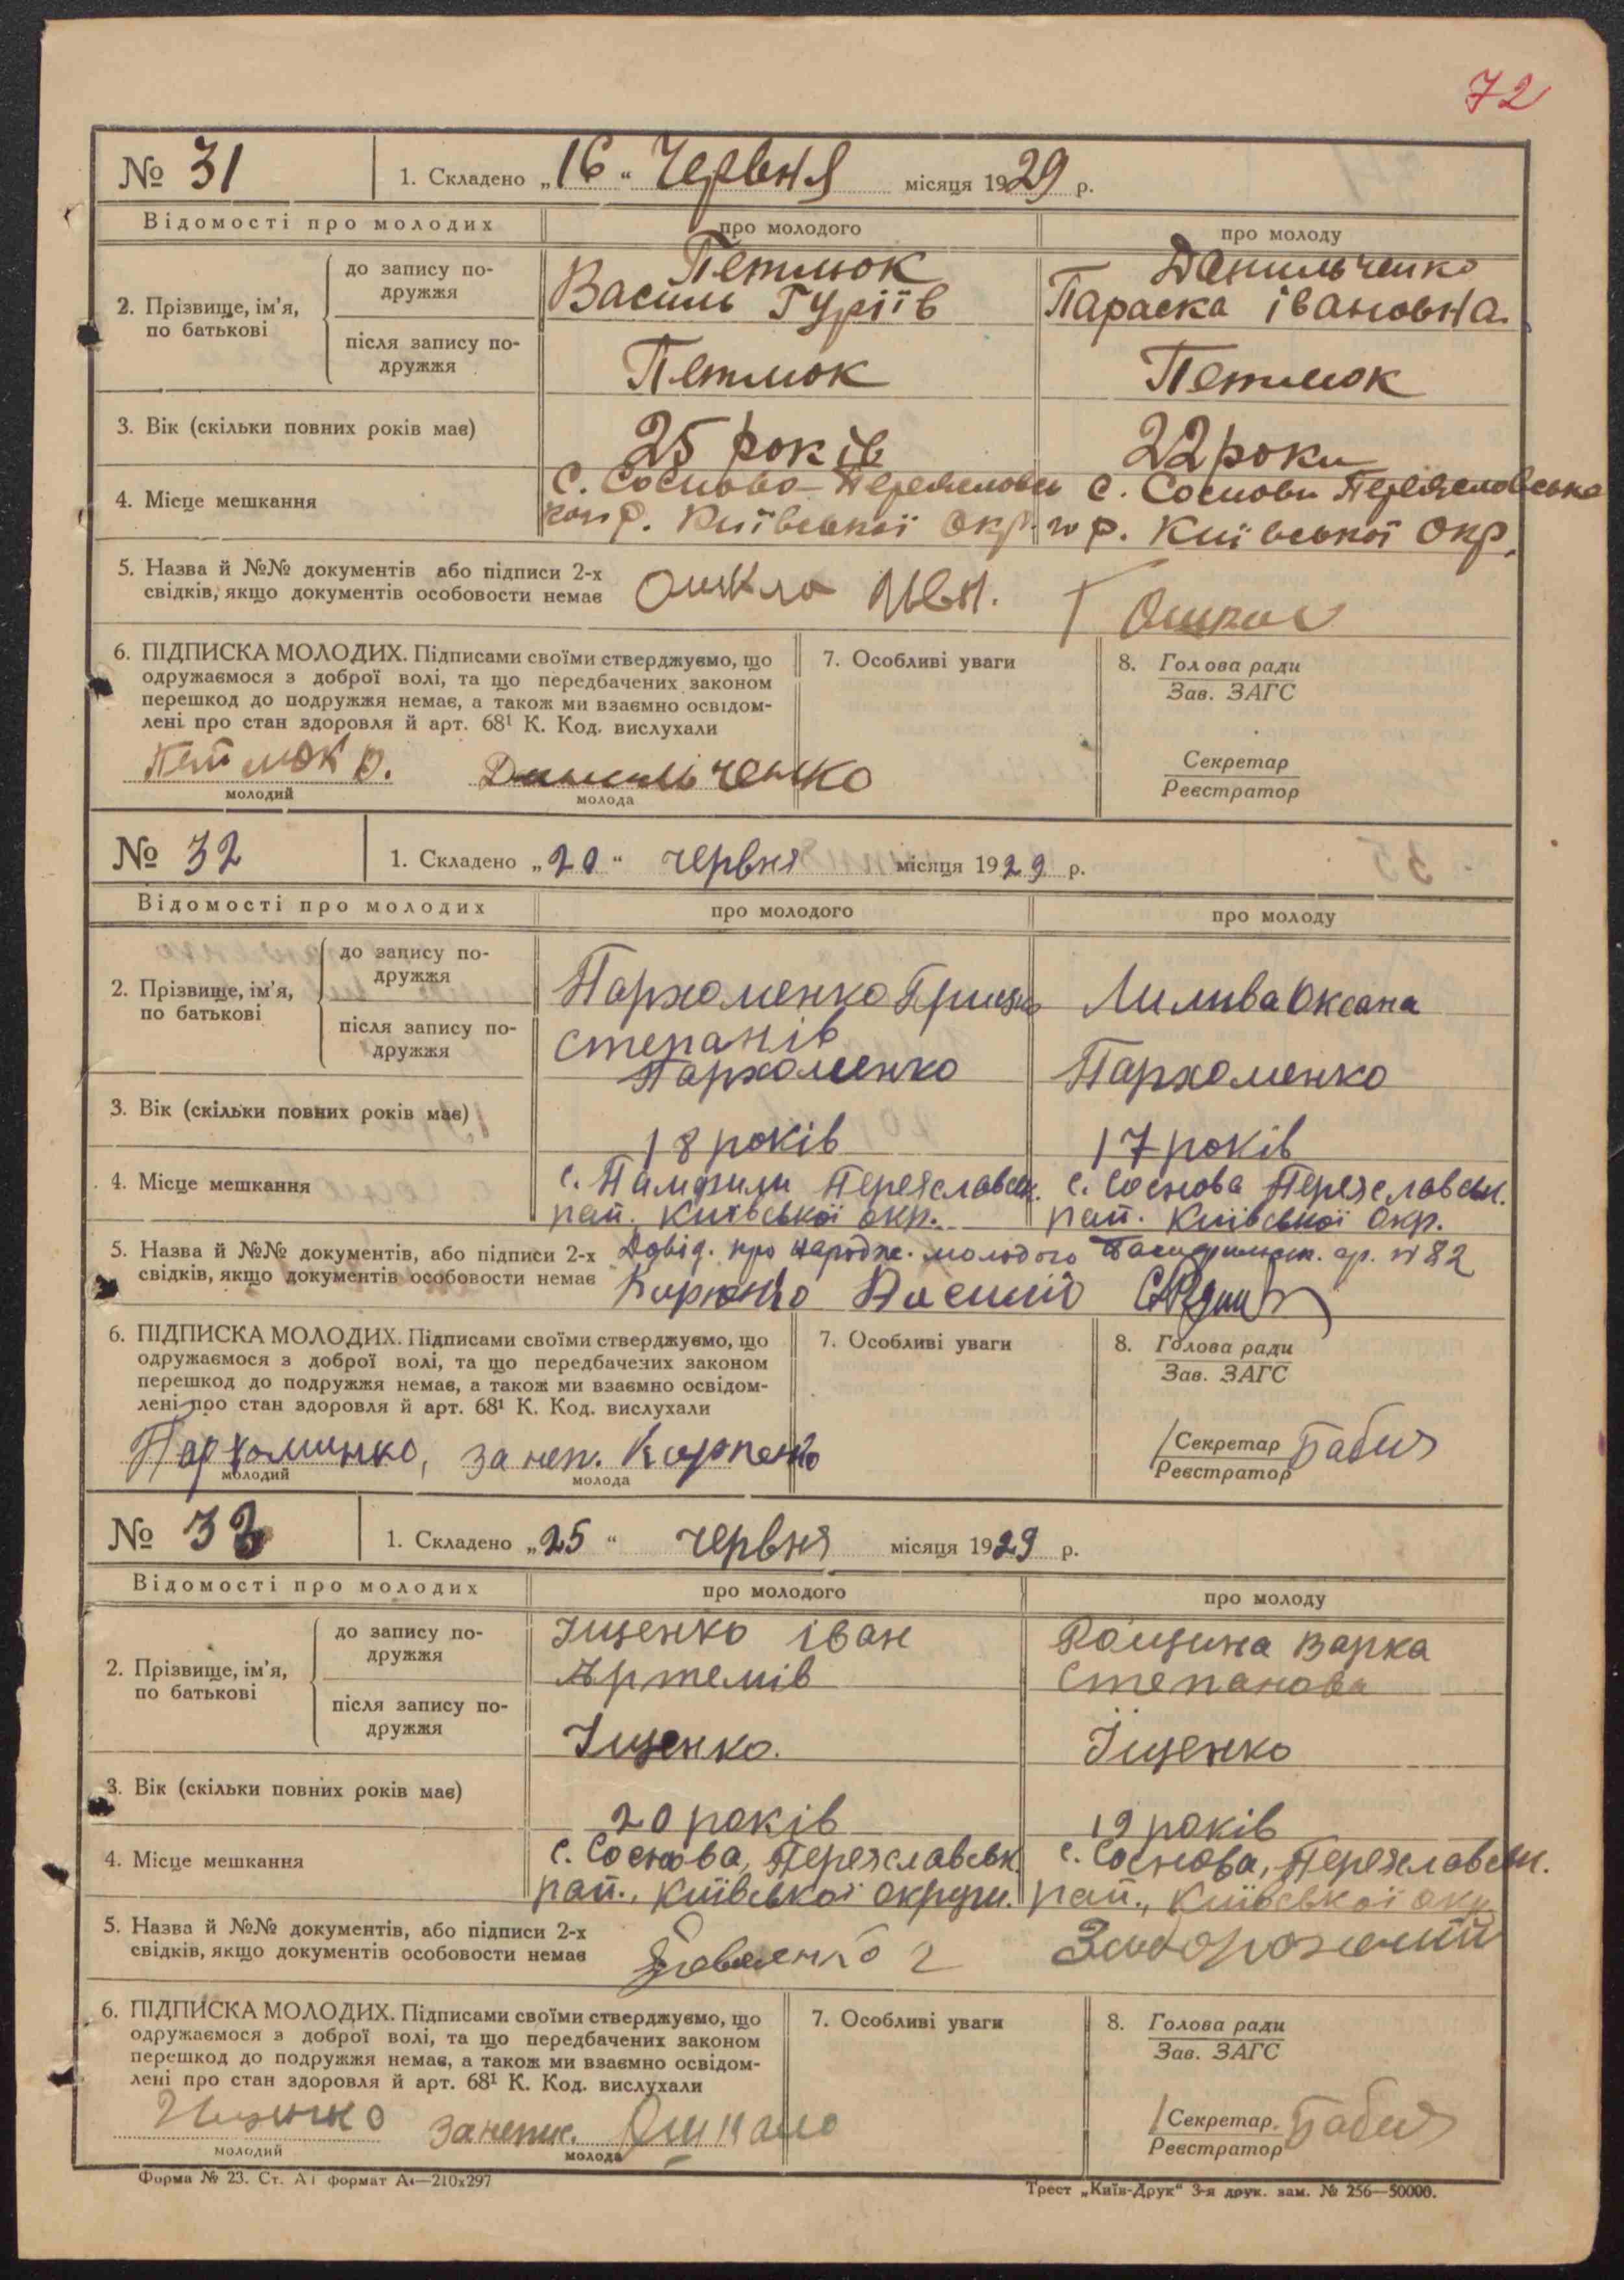 72
№ 31 1. Складено „16“ Червня місяця 1929 р.
Відомості про молодих про молодого про молоду
2. Прізвище, ім'я, по батькові
до запису подружжя
Петлюк Василь Гуріїв
Данильченко Параска івановна
після запису подружжя
Петлюк Петлюк
3. Вік (скільки повних років має) 25 років 22 роки
4. Місце мешкання
с. Соснова
Київської Окр.
с. Соснови
р. Київської Окр.
5. Назва й №№ документів або підписи 2-х
свідків, якщо документів особовости немає
6. ПІДПИСКА МОЛОДИХ. Підписами своїми стверджуємо, що
одружаємося з доброї волі, та що передбачених законом
перешкод до подружжя немає, а також ми взаємно освідом-
лені про стан здоровля й арт. 68¹ К. Код. вислухали
Петлюк В. Данильченко
молодий молода
7. Особливі уваги
8. Голова ради
Зав. ЗАГС
Секретар
Реєстратор
№ 32 1. Складено „20“ червня місяця 1929 р.
Відомості про молодих про молодого про молоду
2. Прізвище, ім'я, по батькові
до запису подружжя
Пархоменко Грицько
Степанів
Лилива Оксана
після запису подружжя
Пархоменко Пархоменко
3. Вік (скільки повних років має) 18 років 17 років
4. Місце мешкання
с. Памфили Переяславськ.
рай. Київської окр.
с. Соснова Переяславськ.
рай. Київської Окр.
5. Назва й №№ документів, або підписи 2-х
свідків, якщо документів особовости немає
Довід. про народж. молодого № 82
6. ПІДПИСКА МОЛОДИХ. Підписами своїми стверджуємо, що
одружаємося з доброї волі, та що передбачених законом
перешкод до подружжя немає, а також ми взаємно освідом-
лені про стан здоровля й арт. 68¹ К. Код. вислухали
Пархоминко, за неп. Карпенко
молодий молода
7. Особливі уваги
8. Голова ради
Зав. ЗАГС
Секретар
Реєстратор
№ 33 1. Складено „25“ червня місяця 1929 р.
Відомості про молодих про молодого про молоду
2. Прізвище, ім'я, по батькові
до запису подружжя
Іщенко іван
Артемів
Рощина Варка
Степанова
після запису подружжя
Іщенко. Іщенко
3. Вік (скільки повних років має) 20 років 19 років
4. Місце мешкання
с. Соснова, Переяславськ.
рай., Київської округи.
с. Соснова, Переяславськ.
рай., Київської окр
5. Назва й №№ документів, або підписи 2-х
свідків, якщо документів особовости немає
6. ПІДПИСКА МОЛОДИХ. Підписами своїми стверджуємо, що
одружаємося з доброї волі, та що передбачених законом
перешкод до подружжя немає, а також ми взаємно освідом-
лені про стан здоровля й арт. 68¹ К. Код. вислухали
молодий молода
7. Особливі уваги
8. Голова ради
Зав. ЗАГС
Секретар.
Реєстратор
Форма № 23. Ст. А1 формат А4—210х297
Трест „Київ-Друк“ 3-я друк. зам. № 256—50000.